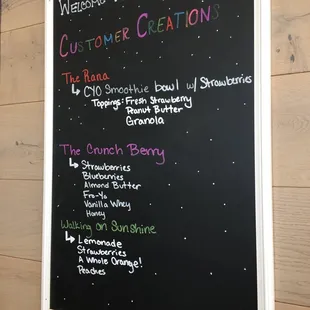 WELCOME
CUSTOMER CREATIONS
The Rana
CYO Smoothie bowl w/ Strawberries
Toppings: Fresh Strawberry
Peanut Butter
Granola
The Crunch Berry
Strawberries
Blueberries
Almond Butter
Fro-Yo
Vanilla Whey
Honey
Walking on Sunshine
Lemonade
Strawberries
A Whole Orange!
Peaches